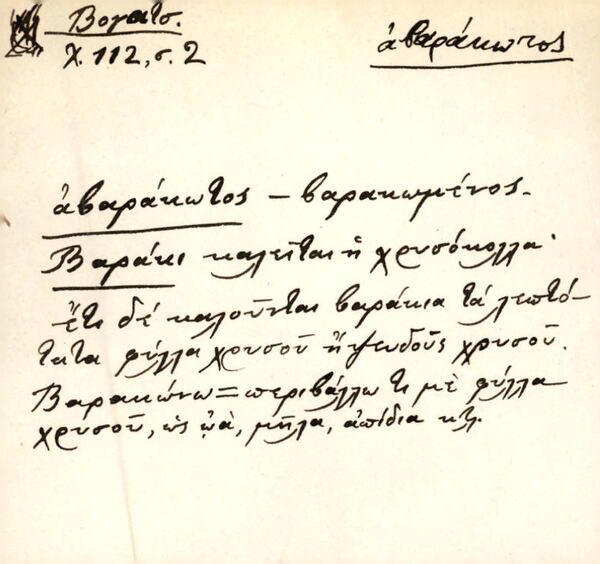 Βογατσ.
χ. 112, σ. 2
ἀβαράκωτος
ἀβαράκωτος – βαρακωμένος.
Βαράκι καλεῖται ἡ χρυσόκολλα·
ἔτι δέ καλοῦνται βαράκια τά λεπτό-
τατα φύλλα χρυσοῦ ἤ ψευδοῦς χρυσοῦ.
Βαρακώνω = περιβάλλω τι μὲ φύλλα
χρυσοῦ, ὡς ᾠά, μῆλα, ἀπίδια κτλ.